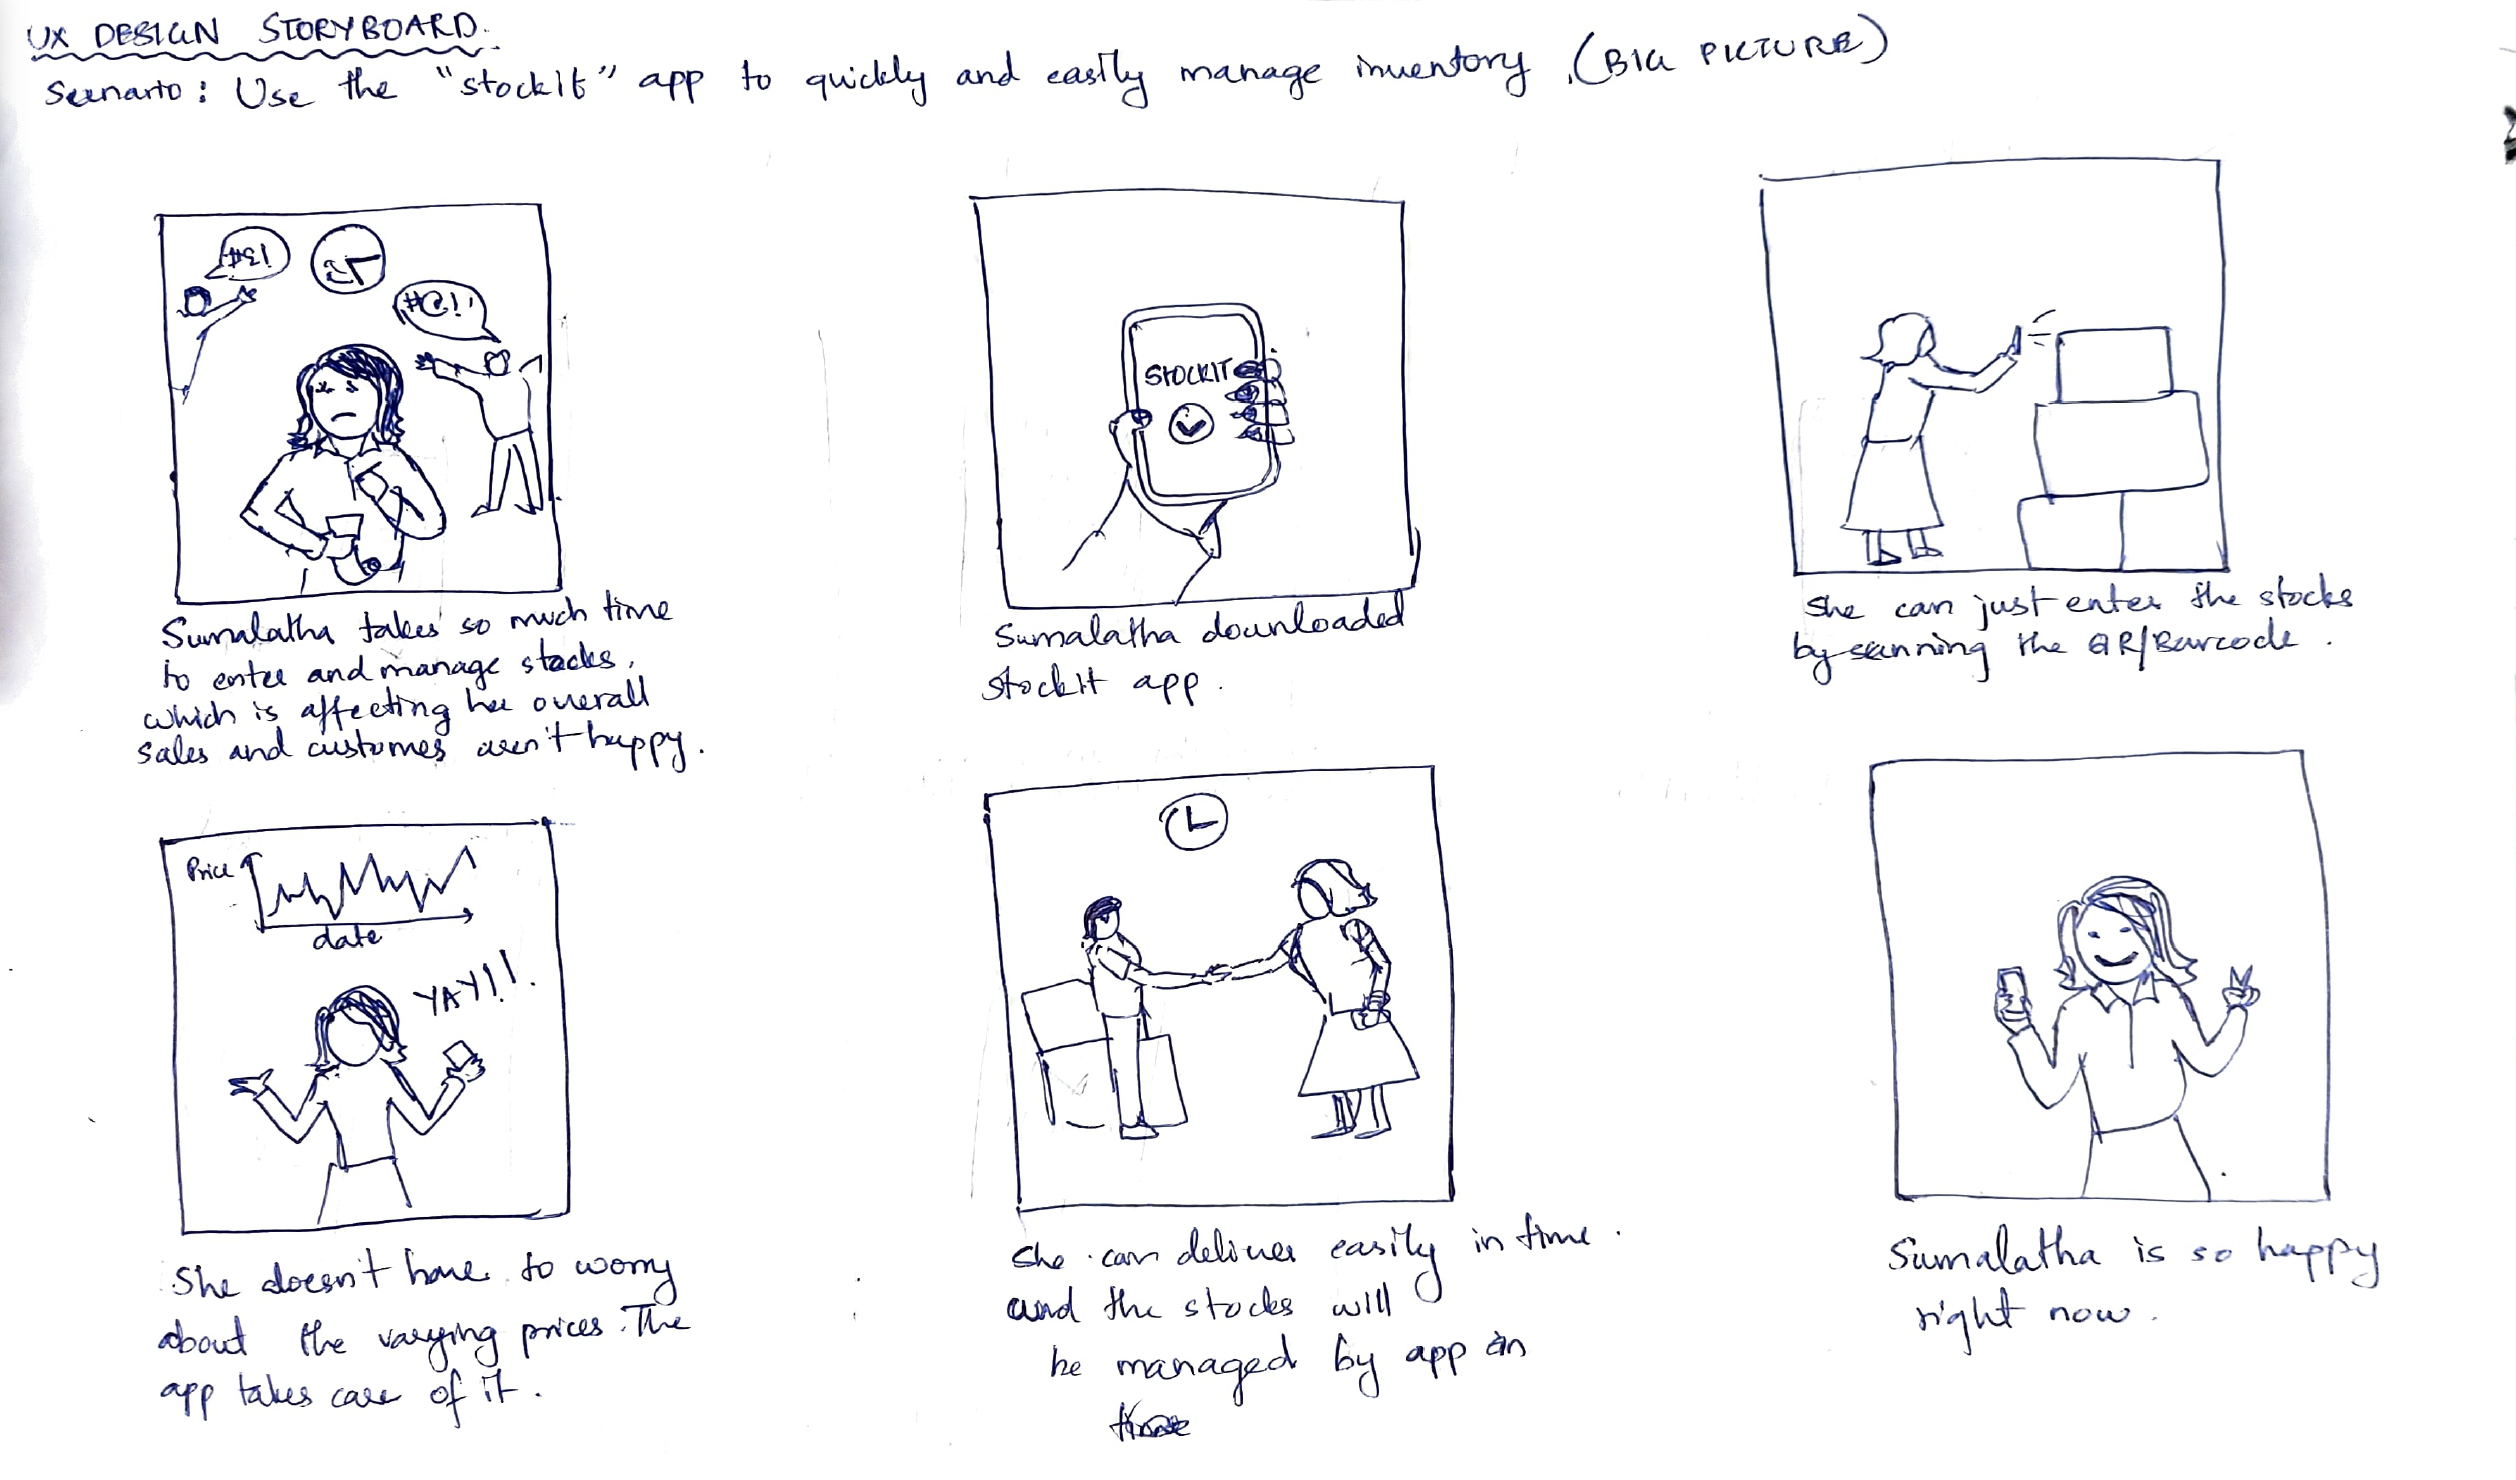 UX DESIGN STORYBOARD.
Scenario: Use the "stockIt" app to quickly and easily manage inventory. (BIG PICTURE)
#@!
#@!!
Sumalatha takes so much time
to enter and manage stocks,
which is affecting her overall
sales and customes aren't happy.
STOCKIT
Sumalatha downloaded
stockIt app.
she can just enter the stocks
by scanning the QR/Barcode.
Price
date
YAY!!.
She doesn't have to worry
about the varying prices. The
app takes care of it.
she can deliver easily in time.
and the stocks will
be managed by app in
Sumalatha is so happy
right now.